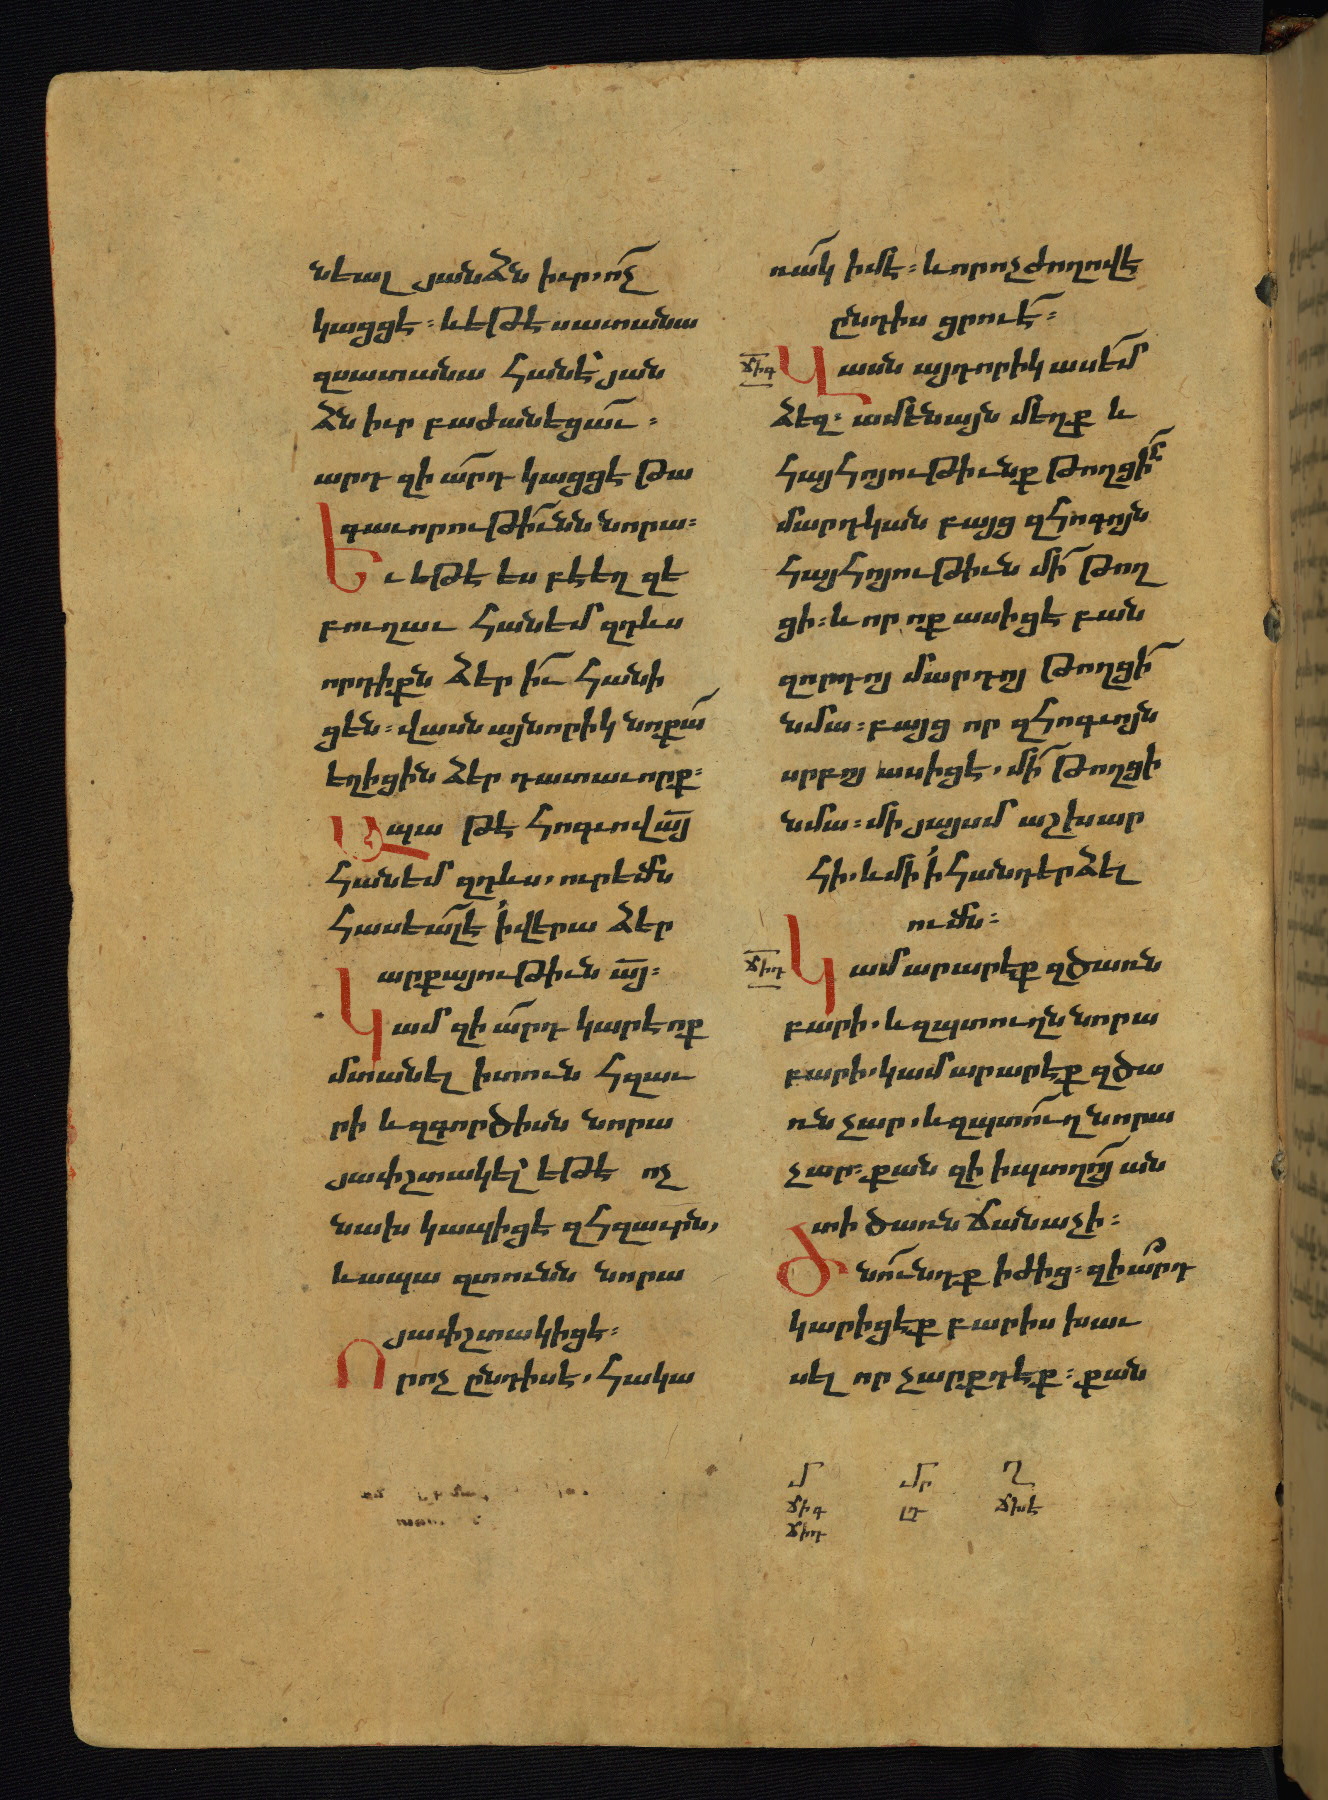 նեալ յանձն իւր, ոչ
կացցէ։ և եթէ սատանա
զսատանա հանէ՝ յան
ձն իւր բաժանեցաւ։
արդ զիարդ կացցէ թա
գաւորութիւնն նորա։
Եւ եթէ ես բէեղ զէ
բուղաւ հանեմ զդևս
որդիքն ձեր իւ հանի
ցեն։ վասն այնորիկ նոքա
եղիցին ձեր դատաւորք։
Ապա թէ հոգւով այ
հանեմ զդևս, ուրեմն
հասեալ է ի վերա ձեր
արքայութիւն այ։
Կամ զիարդ կարէ ոք
մտանել ի տուն հզաւ
րի և զգործիսն նորա
յափշտակել՝ եթէ ոչ
նախ կապիցէ զհզաւրն,
և ապա զտունն նորա
յափշտակիցէ։
Որ ոչ ընդիս է, հակա
ռակ իմ է։ և որ ոչ ժողովէ
ընդիս ցրուէ։
ՃԻԳ Վասն այդորիկ ասեմ
ձեզ։ ամենայն մեղք և
հայհոյութիւնք թողցի
մարդկան բայց զհոգոյն
հայհոյութիւն մի թող
ցի։ և որ ոք ասիցէ բան
զորդոյ մարդոյ թողցի
նմա։ բայց որ զհոգւոյն
սրբոյ ասիցէ, մի թողցի
նմա։ մի յայսմ աշխար
հի, և մի ի հանդերձել
ումն։
ՃԻԴ Կամ արարէք զծառն
բարի, և զպտուղն նորա
բարի, կամ արարէք զծա
ռն չար, և զպտուղ նորա
չար։ քանզի ի պտղոյ ան
տի ծառն ճանաչի։
Ծնունդք իժից։ զիարդ
կարիցէք բարիս խաւ
սել որ չարքդ էք։ քան
Մ Մր Ղ
ՃԻԳ ԼԴ ՃԽԷ
ՃԻԴ